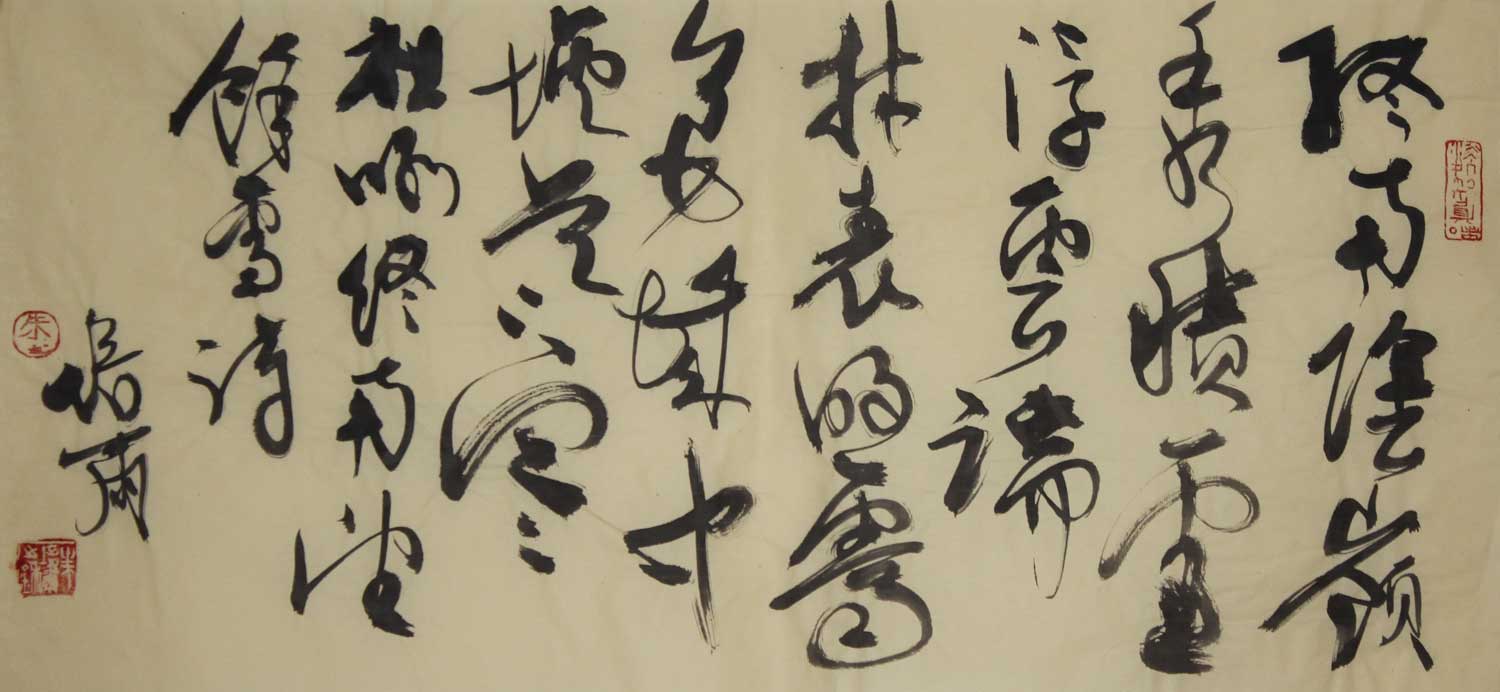 終南陰嶺
秀積雪
浮雲端
林表明霽
色城中
增暮寒
祖咏終南望
餘雪詩
培爾
朱